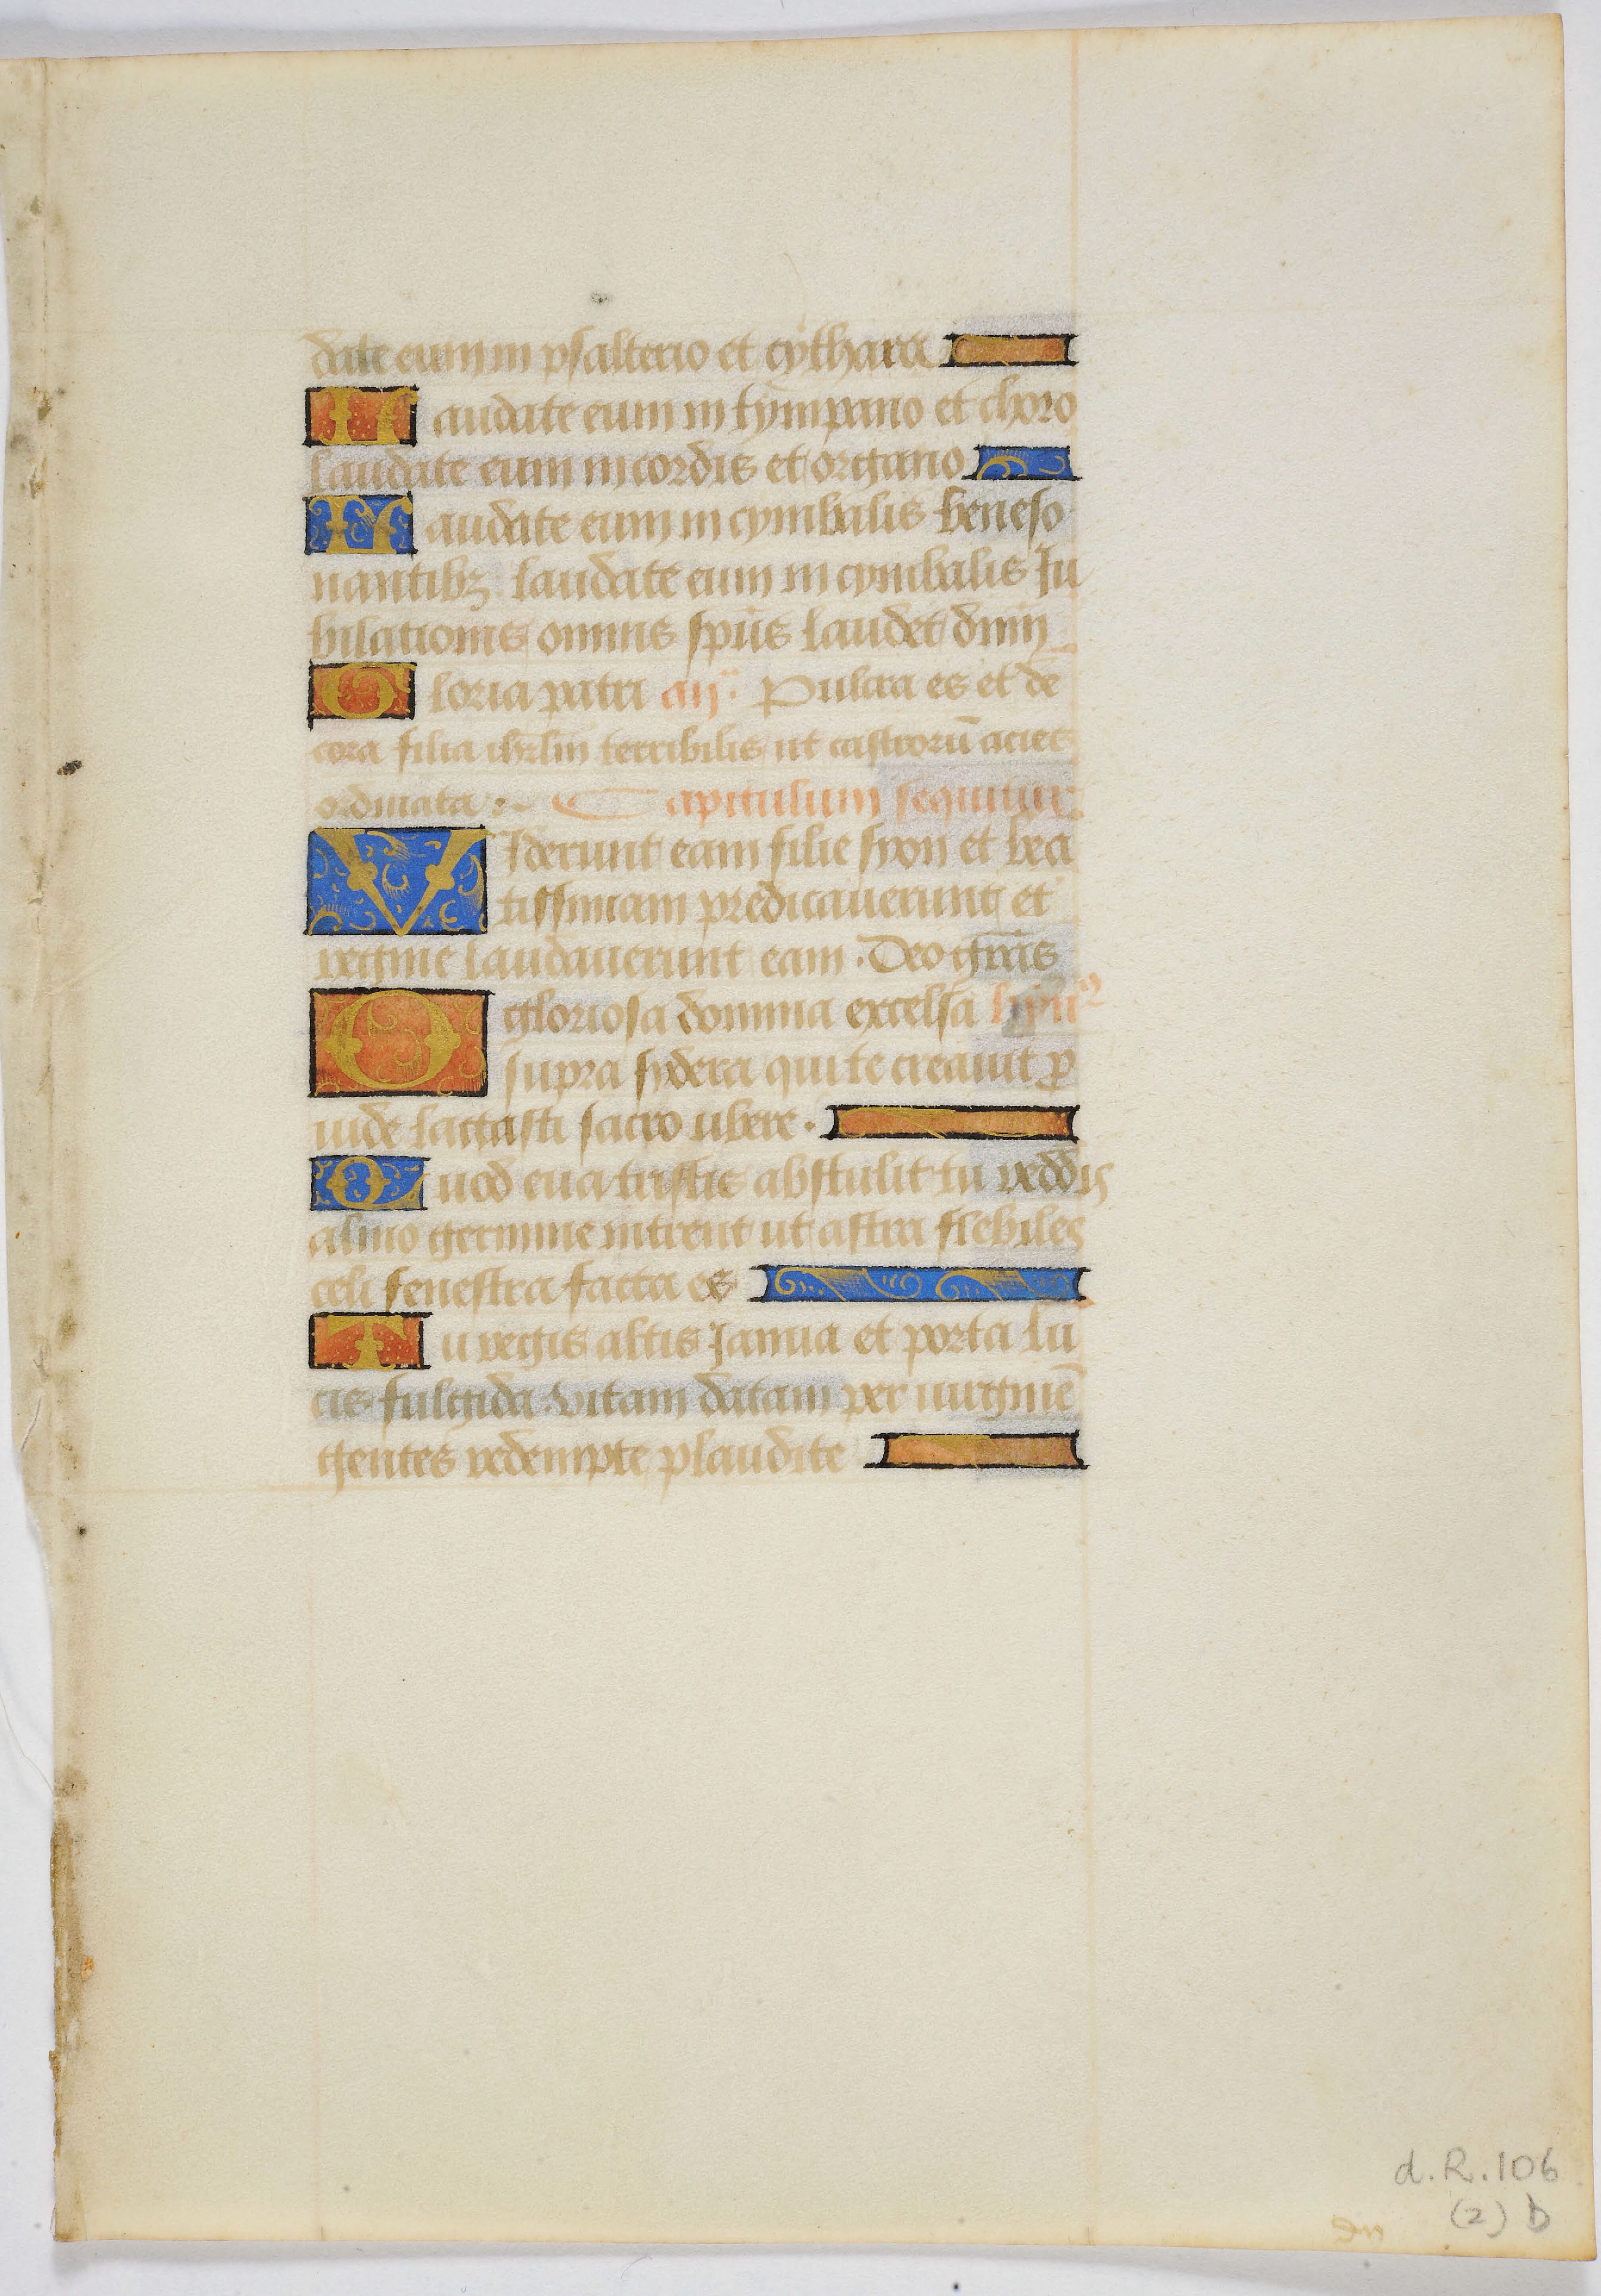 date eum in psalterio et cythara
Laudate eum in tympano et choro
laudate eum in cordis et organo
Laudate eum in cymbalis beneso
nantibꝫ laudate eum in cymbalis Ju
bilationis omnis sp̄us laudet dn̄m
Gloria patri an̄. Pulcra es et de
cora filia ihrlm̄ terribilis ut castrorū acies
ordinata. Capitulum sequitur.
VIderunt eam filie syon et bea
tissimam predicauerunt et
regine laudauerunt eam. Deo gr̄as
O gloriosa domina excelsa
supra sydera qui te creauit ꝓ
uide lactasti sacro ubere.
Quod eua tristis abstulit tu reddis
almo germine intrent ut astra flebiles
celi fenestra facta es
Tu regis altis Janua et porta lu
cis fulgida. vitam datam per uirginē
gentes redempte plaudite
d.R.106
(2) D